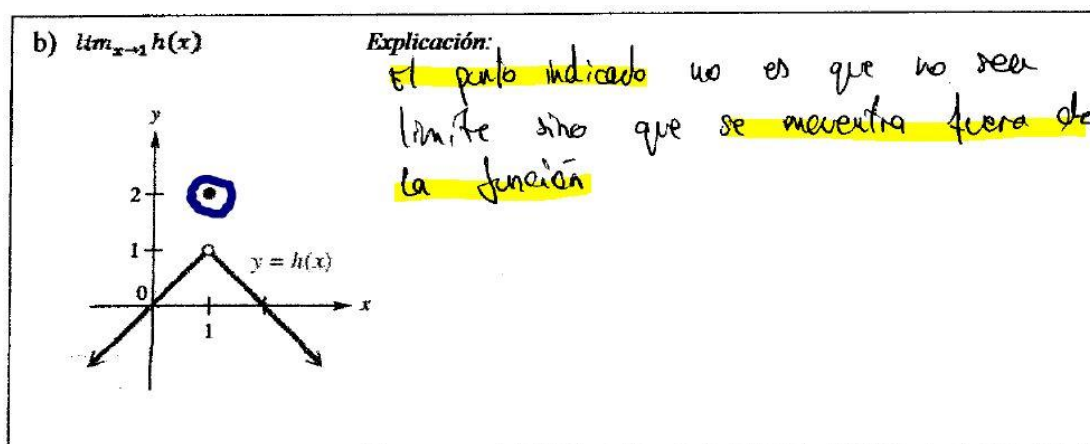 b) lim_{x→1} h(x)
Explicación:
El punto indicado no es que no sea
límite sino que se encuentra fuera de
la función
y
2
1
y = h(x)
0
x
1